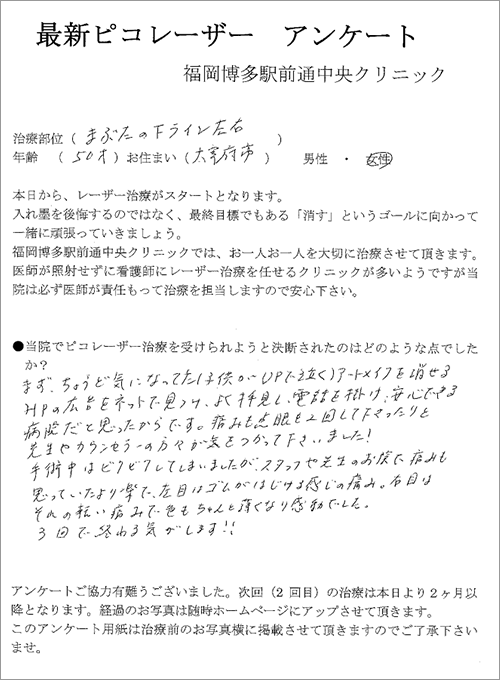 最新ピコレーザー　アンケート
福岡博多駅前通中央クリニック
治療部位（ まぶたの下ライン左右 ）
年齢　（ 50才 ）お住まい（ 太宰府市 ）　男性　・　女性
本日から、レーザー治療がスタートとなります。
入れ墨を後悔するのではなく、最終目標でもある「消す」というゴールに向かって
一緒に頑張っていきましょう。
福岡博多駅前通中央クリニックでは、お一人お一人を大切に治療させて頂きます。
医師が照射せずに看護師にレーザー治療を任せるクリニックが多いようですが当
院は必ず医師が責任もって治療を担当しますので安心下さい。
●当院でピコレーザー治療を受けられようと決断されたのはどのような点でした
か？
まず、ちょうど気になってた（子供がUPで泣く）アートメイクを消せる
HPの広告をネットで見つけ、よく拝見し、電話を掛け、安心できる
病院だと思ったからです。痛みも点眼を2回して下さったりと
先生やカウンセラーの方々が気をつかって下さいました！
手術中はビクビクしてしまいましたが、スタッフや先生のお陰で痛みも
思っていたより楽で、左目はゴムがはじける感じの痛み。右目は
それの軽い痛みで色もちゃんと薄くなり感動でした。
3回で終われる気がします！！
アンケートご協力有難うございました。次回（2回目）の治療は本日より2ヶ月以
降となります。経過のお写真は随時ホームページにアップさせて頂きます。
このアンケート用紙は治療前のお写真横に掲載させて頂きますのでご了承下さい
ませ。